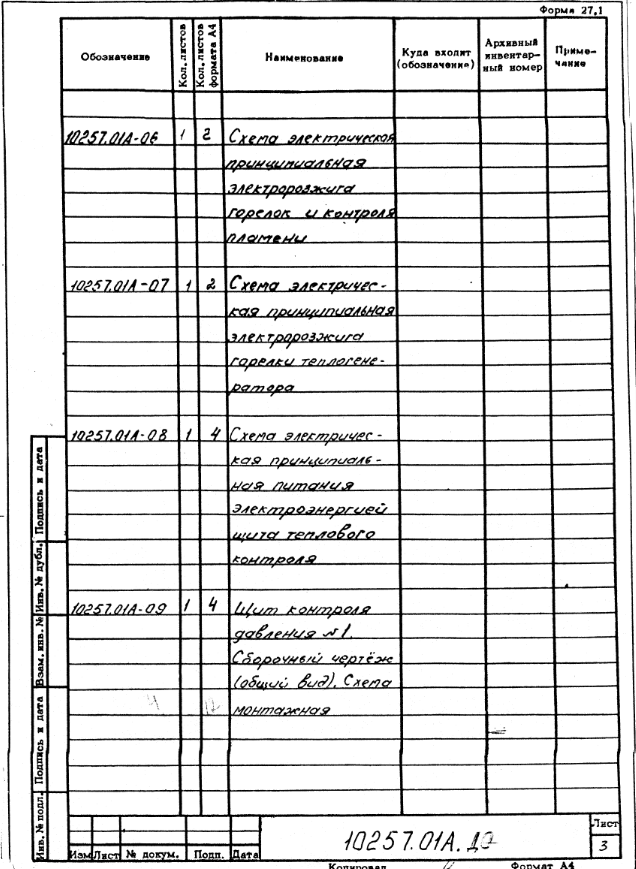 Форма 27,1
Обозначение
Кол. листов
Кол. листов формата А4
Наименование
Куда входит (обозначение)
Архивный инвентарный номер
Примечание
10257.01А-06 1 2 Схема электрическая
принципиальная
электророзжига
горелок и контроля
пламени
10257.01А-07 1 2 Схема электричес-
кая принципиальная
электророзжига
горелки теплогене-
ратора
10257.01А-08 1 4 Схема электричес-
кая принципиаль-
ная питания
электроэнергией
щита теплового
контроля
10257.01А-09 1 4 Щит контроля
давления №1.
Сборочный чертёж
(общий вид). Схема
монтажная
Инв. № подл. Подпись и дата Взам. инв. № Инв. № дубл. Подпись и дата
Изм Лист № докум. Подп. Дата
10257.01А.
Лист
3
Копировал Формат А4